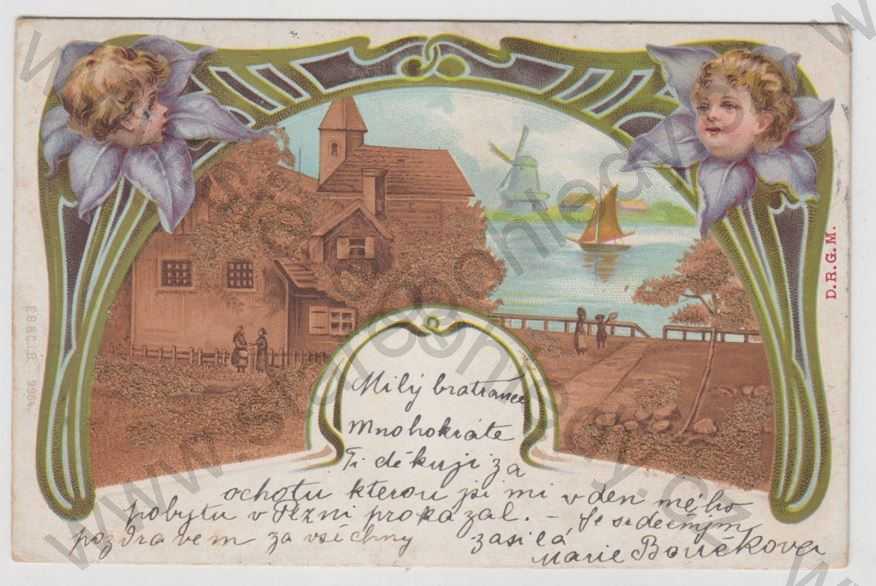 D.R.G.M.
Milý bratranče
Mnohokráte
Ti děkuji za
ochotu kterou jsi mi v den mého
pobytu v Plzni prokázal. – Se srdečným
pozdravem za všechny zasílá
Marie Boučková